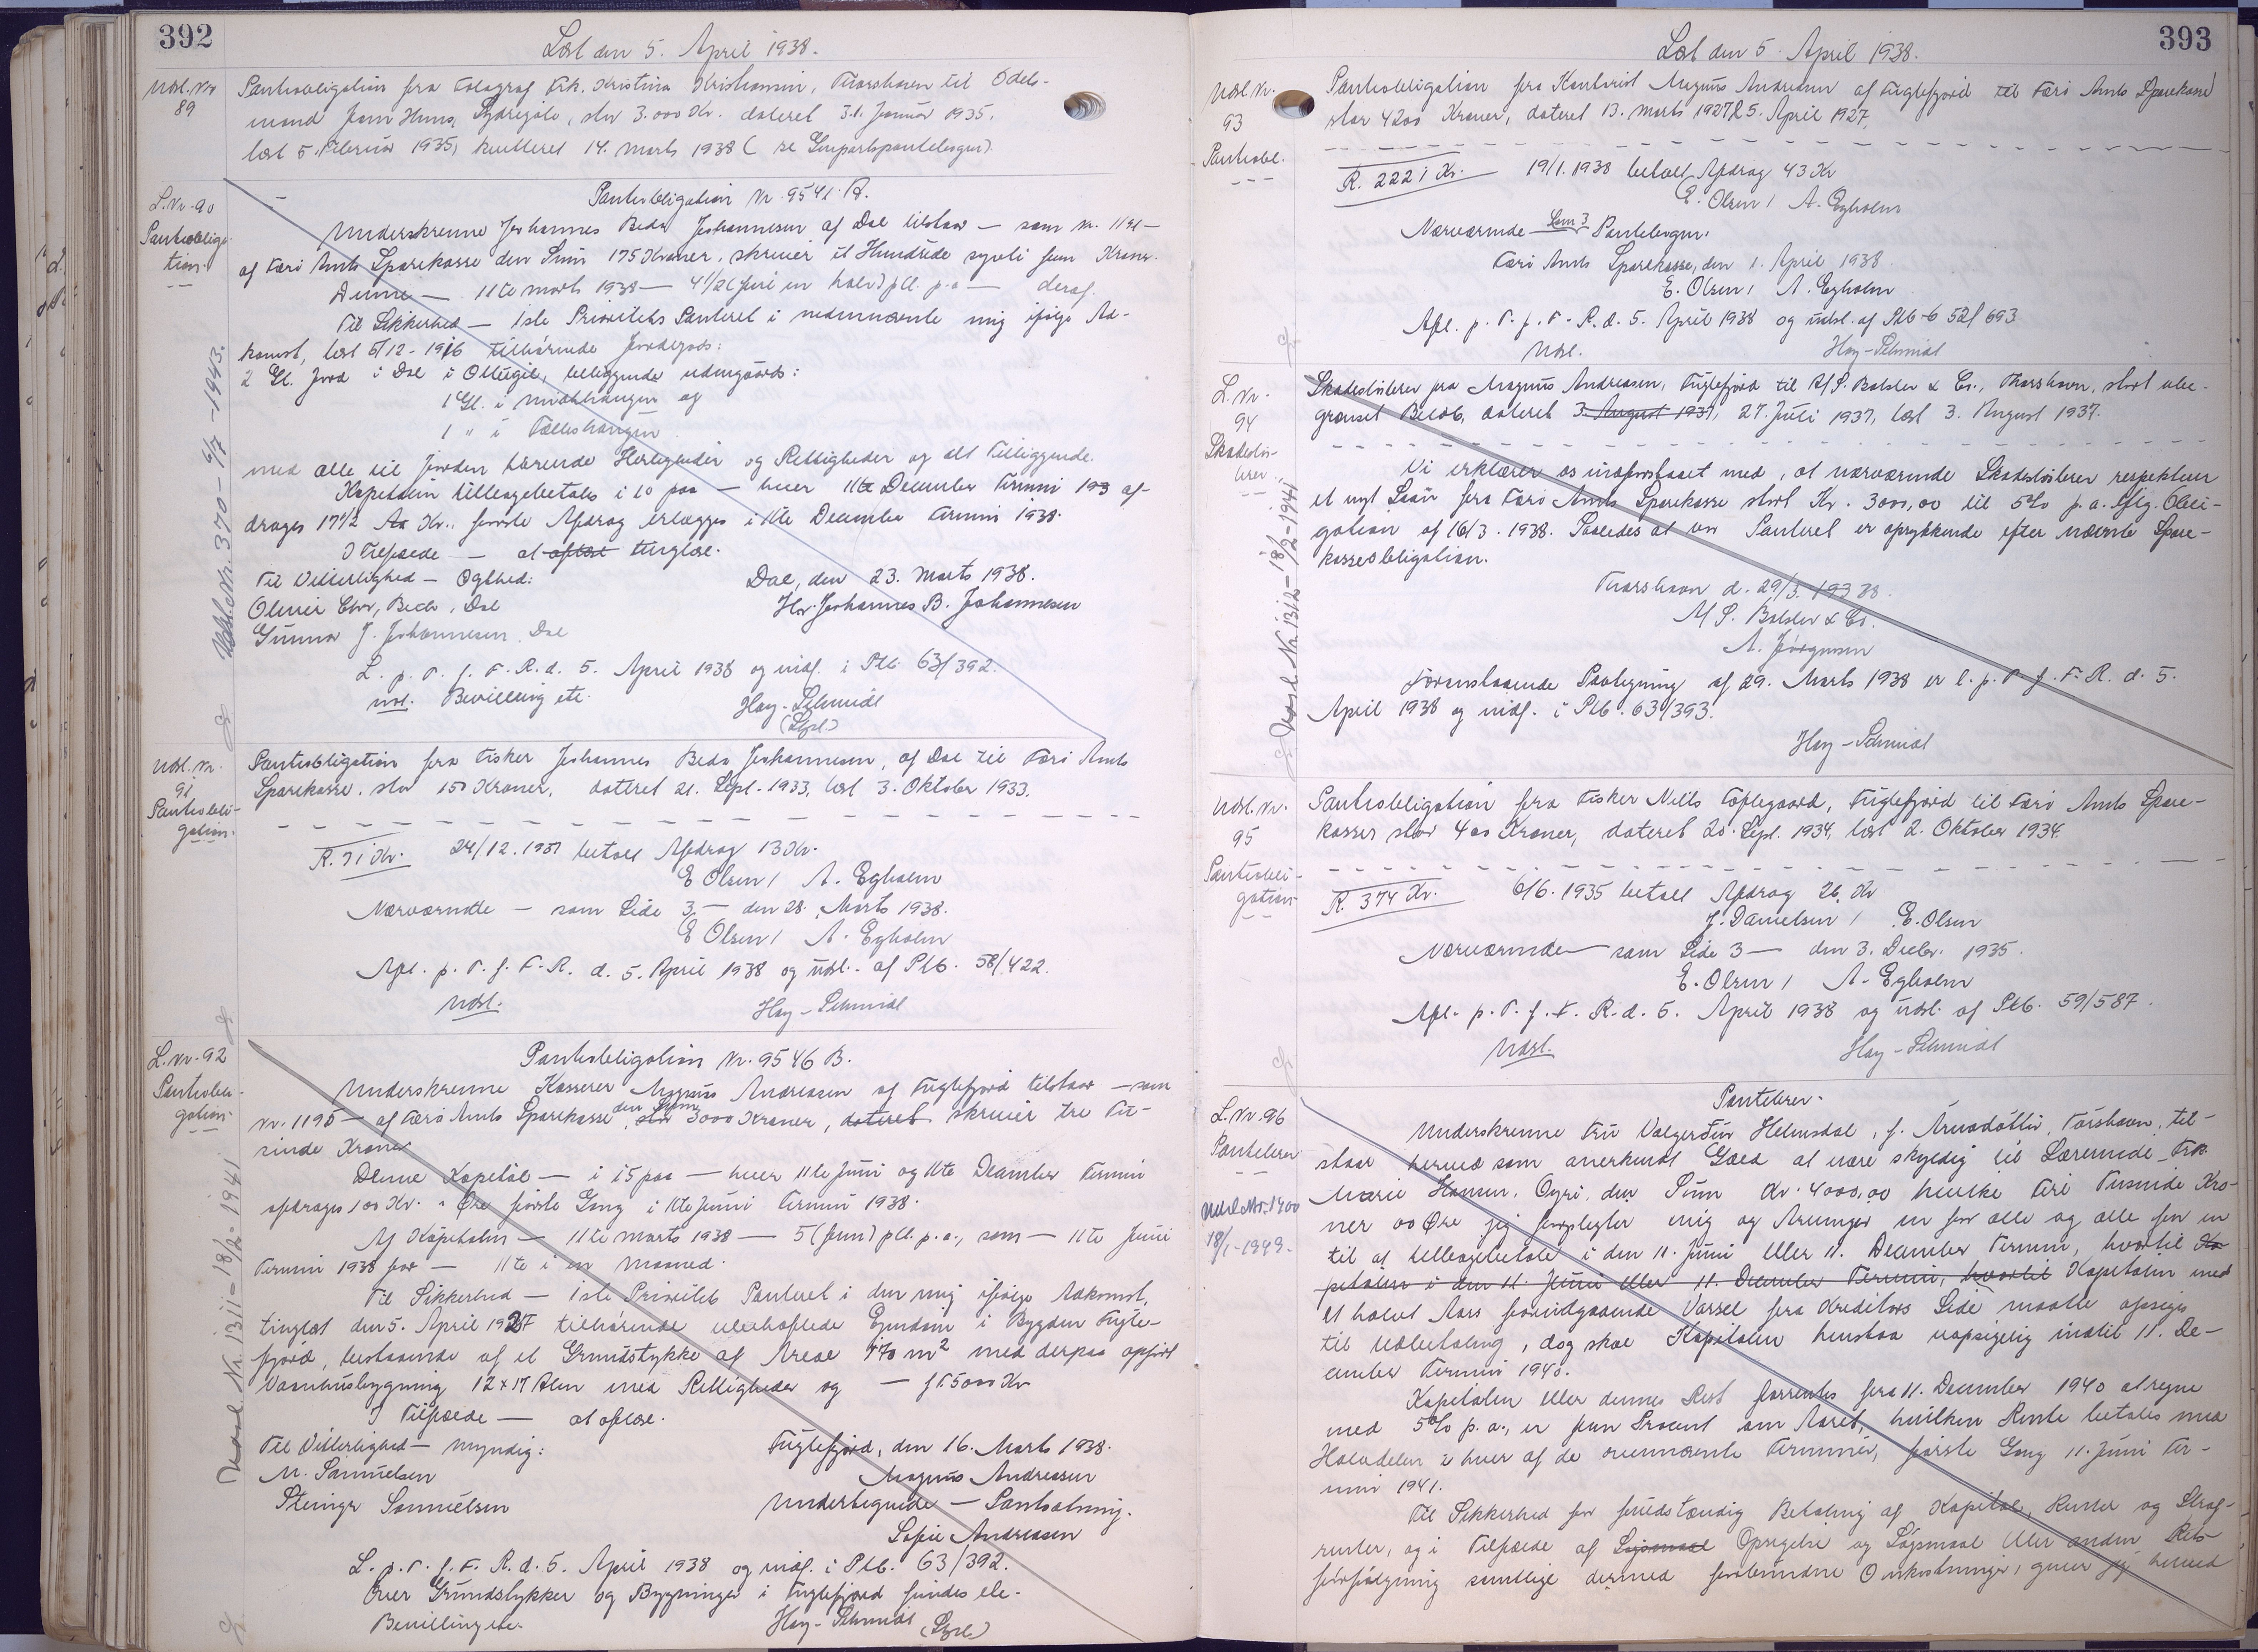 392
Læst den 5. April 1938.
Udsl. Nr
89
Pantobligation fra Fotograf Frk. Kristina Kristiansen, Thorshavn til Odels-
mand Joen Hans, Sydregøte, stor 3.000 Kr. dateret 31. Januar 1935,
læst 5. Februar 1935, kvitteret 14. Marts 1938 ( se Genpartspantebogen).
L. Nr. 90
Pantobliga-
tion.
Pantobligation Nr. 9541 A.
Underskrevne Johannes Beda Johannesen af Dal tilstaar — som Nr. 1191 —
af Færø Amts Sparekasse den Sum 175 Kroner, skriver et Hundrede syvti fem Kroner.
Denne — 11te Marts 1938 — 4 1/2 (fire en halv) pCt. p.a. — deraf.
Til Sikkerhed — 1ste Prioritets Panteret i nedennævnte mig ifølge Ad-
komst, læst 5/12 - 1916 tilhørende Jordegods:
2 Gl. Jord i Dal i beliggende udengaards:
1 Gl. i og
1 " i
med alle til Jorden hørende Herligheder og Rettigheder og alt Tilliggende.
Kapitalen tilbagebetales i 10 paa — hver 11te December Termin 193 af-
drages 17 1/2 Aa Kr., første Afdrag erlægges i 11te December Termin 1938.
I Tilfælde — at aflæst tinglæst.
Til Vitterlighed — Ogthed:
Dal, den 23. Marts 1938.
Oliver Chr. Bech, Dal
Hr. Johannes B. Johannesen
Gunnar J. Johannesen, Dal
L. p. T. f. F. R. d. 5. April 1938 og indf. i Ptb. 63/392.
udl. Bevilling etc.
Høy-Schmidt
(Gyrl.)
Udsl. Nr. 370 - 6/7 - 1943.
Udsl. Nr.
91
Pantobli-
gation.
Pantobligation fra Fisker Johannes Beda Johannesen, af Dal til Færø Amts
Sparekasse, stor 150 Kroner, dateret 21. Sept. 1933, læst 3. Oktober 1933.
R. 71 Kr. 24/12. 1937 betalt Afdrag 13 Kr.
E Olsen / A. Egholm
Nærværende — som Side 3 — den 28. Marts 1938.
E Olsen / A. Egholm
Afl. p. T. f. F. R. d. 5. April 1938 og udsl. af Ptb. 58/422.
Udsl.
Høy-Schmidt
L. Nr. 92
Pantobli-
gation.
Pantobligation Nr. 9546 B.
Underskrevne Kasserer Magnus Andreasen af Fuglefjord tilstaar — som
Nr. 1195 — af Færø Amts Sparekasse, stor den Sum 3000 Kroner, dateret skriver tre Tu-
sinde Kroner
Denne Kapital — i 15 paa — hver 11te Juni og 11te December Termin
afdrages 100 Kr. " Øre første Gang i 11te Juni Termin 1938.
Af Kapitalen — 11te Marts 1938 — 5 (fem) pCt. p.a., som — 11te Juni
Termin 1938 for — 11te i en Maaned.
Til Sikkerhed — 1ste Prioritets Panteret i den mig ifølge Adkomst,
tinglæst den 5. April 1927 tilhørende ubehæftede Ejendom i Bygden Fugle-
fjord, bestaaende af et Grundstykke af Areal 170 m² med derpaa opført
Vaanhusbygning 12 x 17 Alen med Rettigheder og — f.t. 5000 Kr
I Tilfælde — at aflæse.
Til Vitterlighed — Myndig:
Fuglefjord, den 16. Marts 1938.
M. Samuelsen
Magnus Andreasen
Steingr Samuelsen
Undertegnede — Pantsætning.
Sofie Andreasen
L. p. T. f. F. R. d. 5. April 1938 og indf. i Ptb. 63/392.
Over Grundstykker og Bygninger i Fuglefjord findes ele-
Bevilling etc.
Høy-Schmidt (Gyrl.)
Udsl. Nr. 1311 - 18/2 - 1941
393
Læst den 5. April 1938.
Udsl. Nr.
93
Pantobl.
Pantobligation fra Kontorist Magnus Andreasen af Fuglefjord til Færø Amts Sparekasse
stor 4200 Kroner, dateret 13. Marts 1927 l 5. April 1927.
R. 2221 Kr. 19/1. 1938 betalt Afdrag 43 Kr
E. Olsen / A. Egholm
Nærværende som 3 Pantebogen.
Færø Amts Sparekasse, den 1. April 1938
E. Olsen / A. Egholm
Afl. p. T. f. F. R. d. 5. April 1938 og udsl. af Ptb 52/693
Udsl.
Høy-Schmidt
L. Nr.
94
Skadesløs-
brev
Skadesløsbrev fra Magnus Andreasen, Fuglefjord til A/S. Balslev & Co., Thorshavn, stort ube-
grænset Beløb, dateret 3. August 1937, 27. Juli 1937, læst 3. August 1937.
Vi erklærer os indforstaaet med, at nærværende Skadesløsbrev respekterer
et nyt Laan fra Færø Amts Sparekasse stort Kr. 3000,00 til 5% p.a. iflg. Obli-
gation af 16/3. 1938. Saaledes at vor Panteret er oprykkende efter nævnte Spare-
kasseobligation.
Thorshavn d. 29/3. 1938.
A/S. Balslev & Co.
A. Jörgensen
Foranstaaende Paategning af 29. Marts 1938 er l. p. T. f. F. R. d. 5.
April 1938 og indf. i Ptb. 63/393.
Høy-Schmidt
Udsl. Nr. 1312 - 18/2 - 1941
Udsl. Nr.
95
Pantobli-
gation
Pantobligation fra Fisker Nills Toftegaard, Fuglefjord til Færø Amts Spare-
kasser stor 400 Kroner, dateret 20. Sept. 1934, læst 2. Oktober 1934.
R. 374 Kr. 6/6. 1935 betalt Afdrag 26 Kr
J. Danielsen / E. Olsen
Nærværende — som Side 3 — den 3. Decbr. 1935.
E. Olsen / A. Egholm
Afl. p. T. f. F. R. d. 5. April 1938 og udsl. af Ptb. 59/587.
Udsl.
Høy-Schmidt
L. Nr. 96
Pantebrev
Udsl. Nr. 1400
18/1-1949.
Pantebrev.
Underskrevne Fru Valgerður Helmsdal, f. Árnadóttir, Tórshavn, til-
staar herved som anerkendt Gæld at være skyldig til Lærerinde Frk
Marie Hansen, Øyri, den Sum Kr. 4000,00 hvilke Fire Tusinde Kro-
ner 00 Øre jeg forpligter mig og Arvinger en for alle og alle for en
til at tilbagebetale i den 11. Juni eller 11. December Termin, hvortil Ka
pitalen i den 11. Juni eller 11. December Termin, hvortil Kapitalen med
et halvt Aars forudgaaende Varsel fra Kreditors Side maatte opsiges
til Udbetaling, dog skal Kapitalen henstaa uopsigelig indtil 11. De-
cember Termin 1940.
Kapitalen eller dennes Rest forrentes fra 11. December 1940 at regne
med 5% p.a., er fem Procent om Aaret, hvilken Rente betales med
Halvdelen i hver af de ovennævnte Terminer, første Gang 11. Juni Ter-
min 1941.
Til Sikkerhed for fuldstændig Betaling af Kapital, Renter og Straf-
renter, og i Tilfælde af Søgsmaal Opsigelse og Søgsmaal eller anden Rets-
forfølgning samtlige dermed forbundne Omkostninger, giver jeg herved